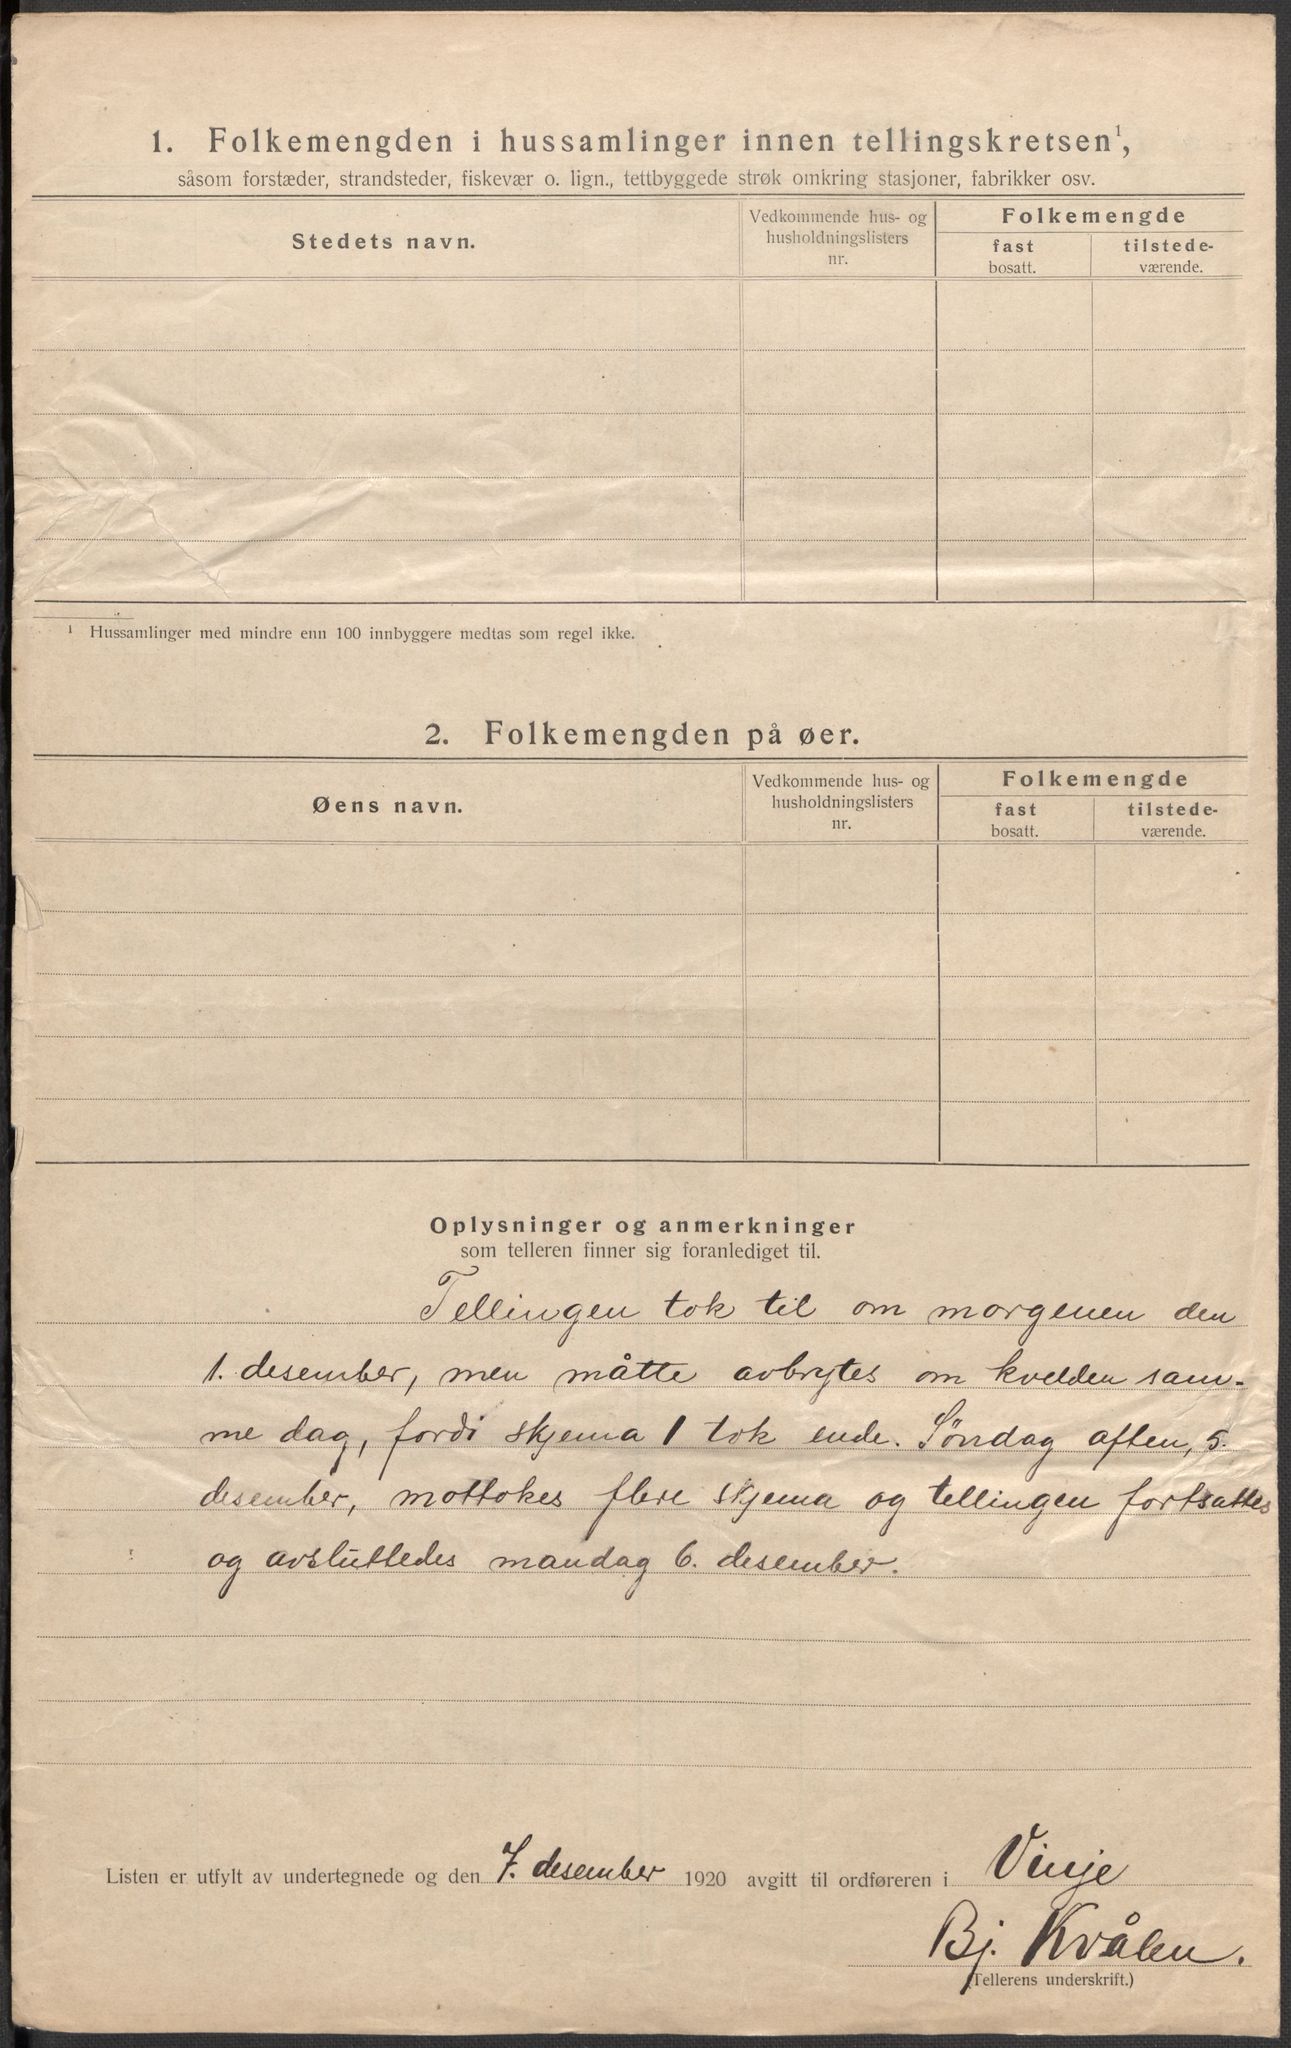 1. Folkemengden i hussamlinger innen tellingskretsen¹,
såsom forstæder, strandsteder, fiskevær o. lign., tettbyggede strøk omkring stasjoner, fabrikker osv.
Stedets navn.
Vedkommende hus- og
husholdningslisters
nr.
Folkemengde
fast
bosatt.
tilstede-
værende.
¹ Hussamlinger med mindre enn 100 innbyggere medtas som regel ikke.
2. Folkemengden på øer.
Øens navn.
Vedkommende hus- og
husholdningslisters
nr.
Folkemengde
fast
bosatt.
tilstede-
værende.
Oplysninger og anmerkninger
som telleren finner sig foranlediget til.
Tellingen tok til om morgenen den
1. desember, men måtte avbrytes om kvelden sam-
me dag, fordi skjema 1 tok ende. Søndag aften, 5.
desember, mottokes flere skjema og tellingen fortsattes
og avsluttedes mandag 6. desember.
Listen er utfylt av undertegnede og den 7. desember 1920 avgitt til ordføreren i Vinje
Bj. Kvålen.
(Tellerens underskrift.)